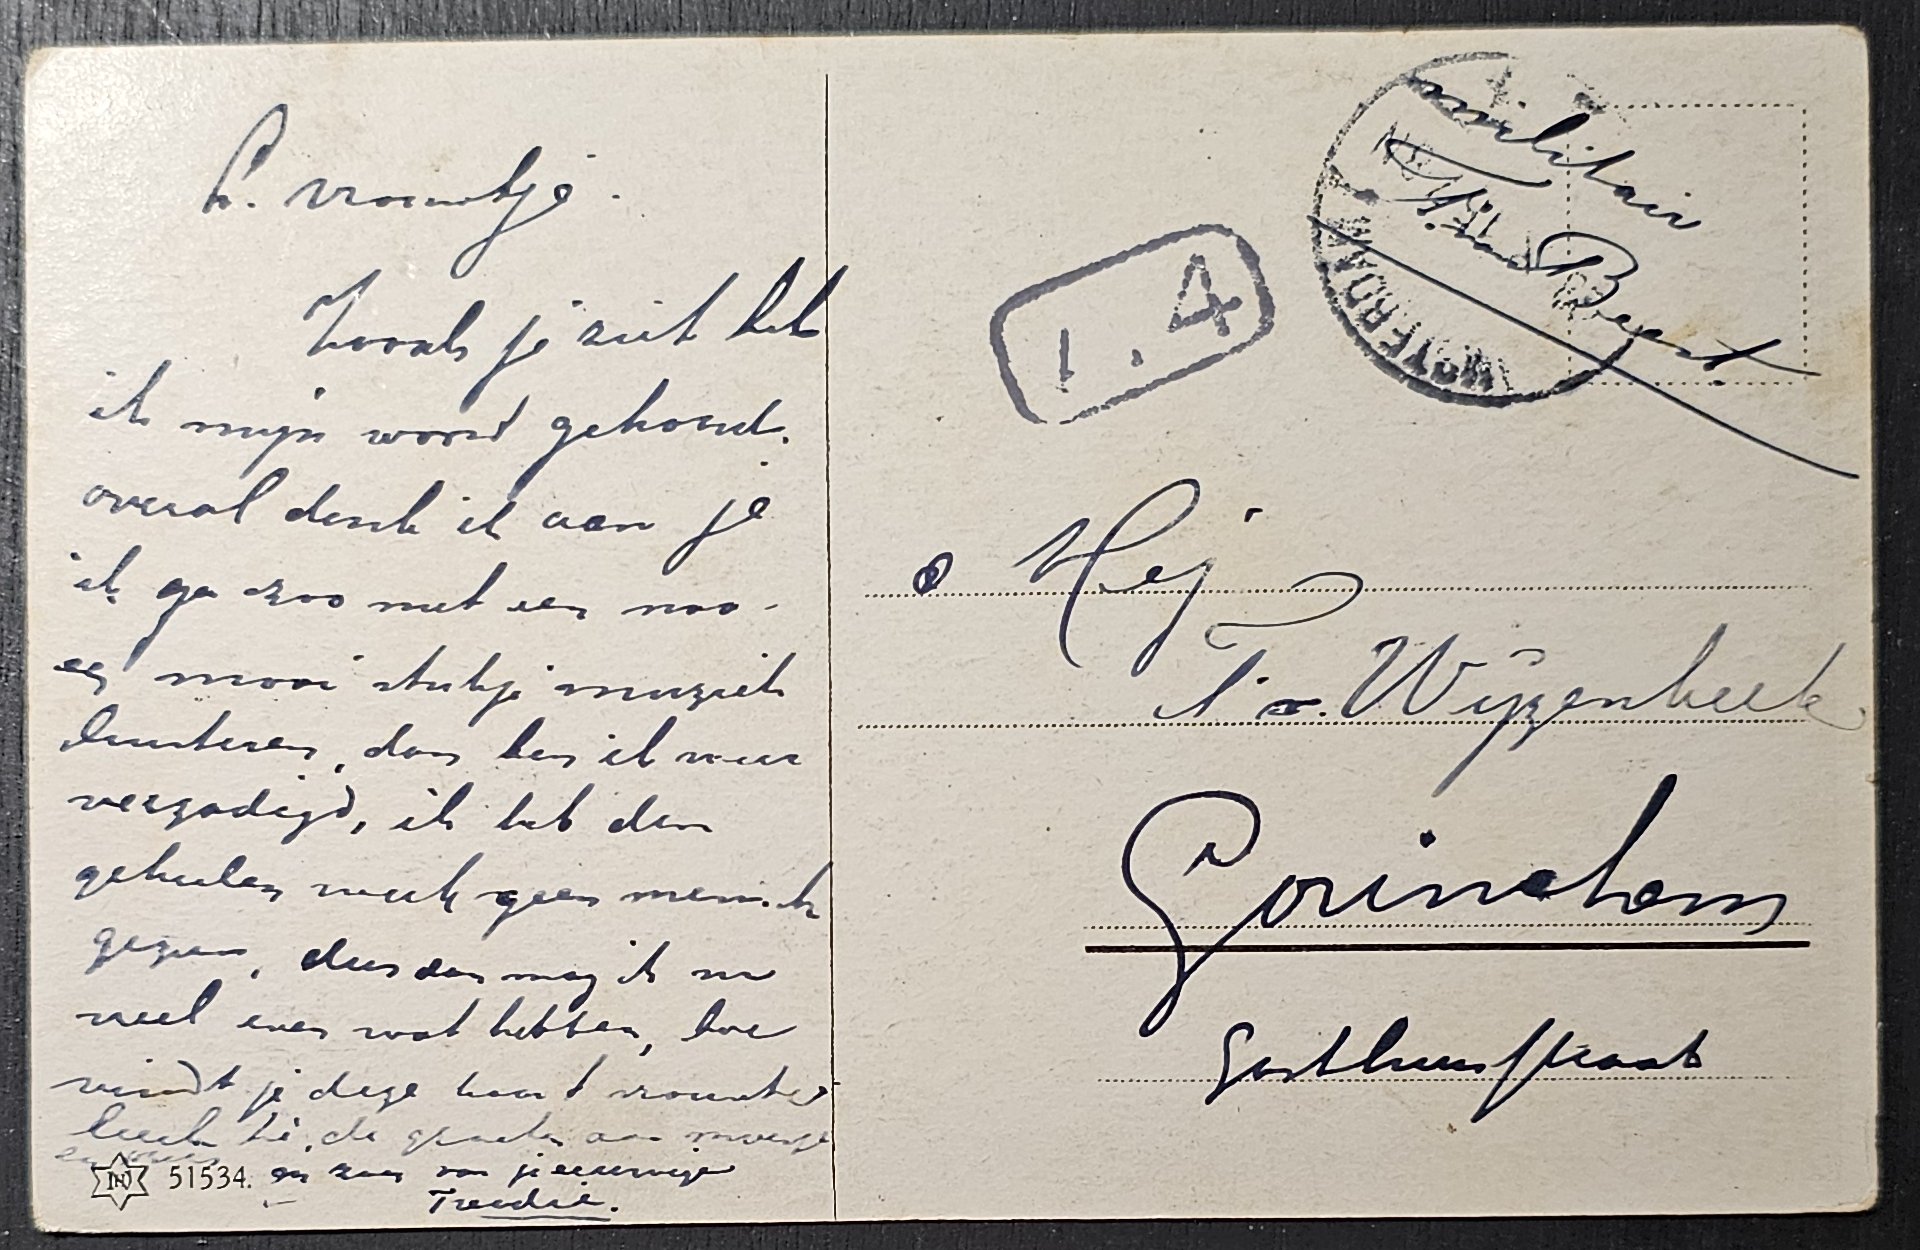 L. vrouwtje.
Zooals je ziet heb
ik mijn woord gehoud.
overal denk ik aan je
ik ga zoo met een
en mooi stukje muziek
luisteren, dan ben ik weer
verzadigd, ik heb den
geheelen week geen mensch
gezien, dus dan mag ik nu
weel even wat hebben, hoe
vindt je deze kaart vrouwtje
leuk hé, de groeten aan moesje
en zoen van je eeuwige
Treedie.
51534.
militair
v.d. Beest
1.4
WOTERDAM
Mej
v. Wijzenbeek
Gorinchem
Gasthuisstraat